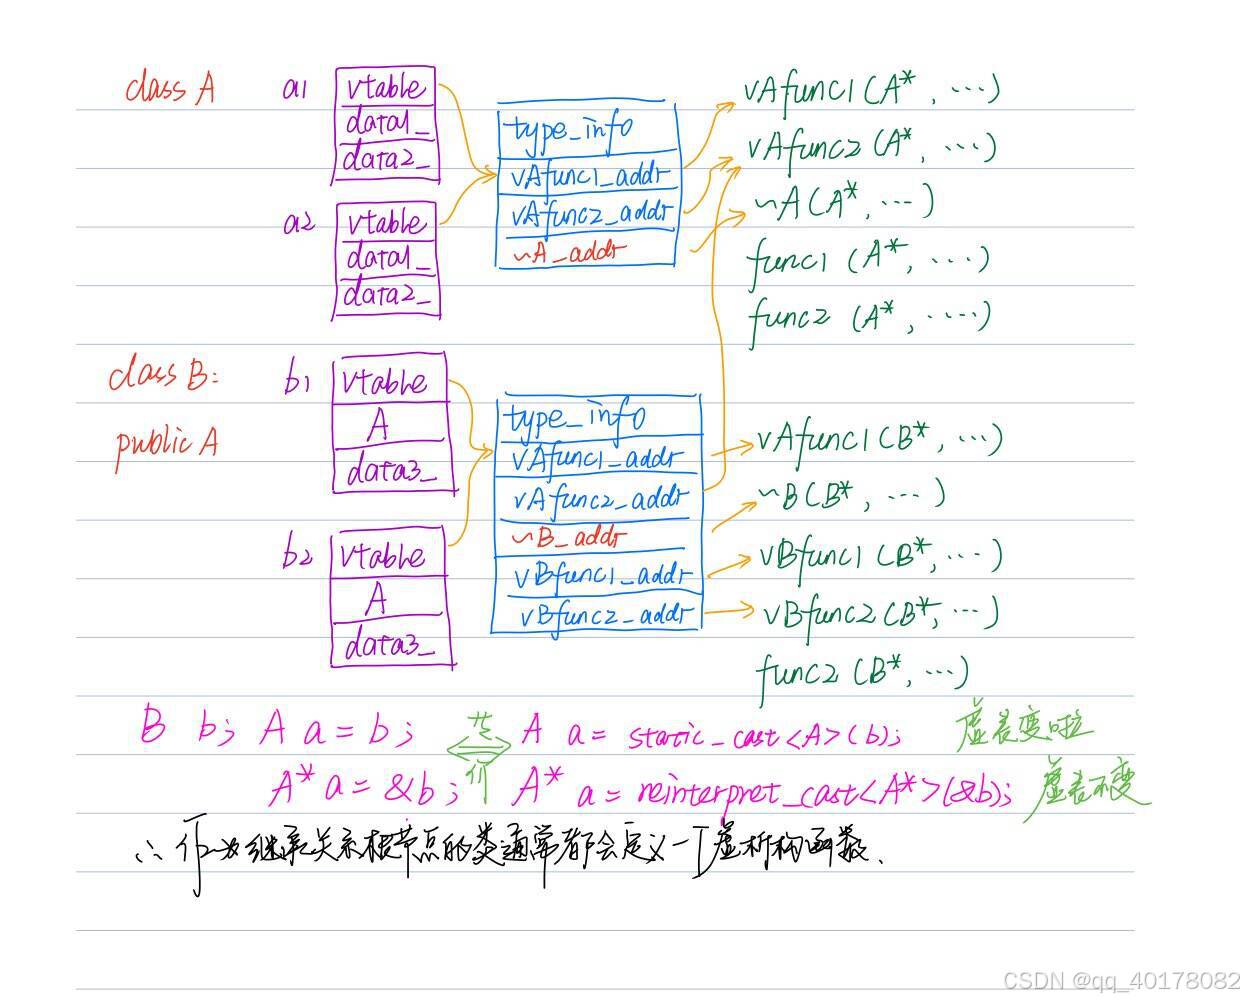 class A
a1
vtable
data1_
data2_
a2
vtable
data1_
data2_
type_info
vAfunc1_addr
vAfunc2_addr
~A_addr
vAfunc1(A*, ...)
vAfunc2(A*, ...)
~A(A*, ...)
func1(A*, ...)
func2(A*, ....)
class B:
public A
b1
vtable
A
data3_
b2
vtable
A
data3_
type_info
vAfunc1_addr
vAfunc2_addr
~B_addr
vBfunc1_addr
vBfunc2_addr
vAfunc1(B*, ...)
~B(B*, ...)
vBfunc1(B*, ...)
vBfunc2(B*, ...)
func2(B*, ...)
B b; A a = b; 等价 A a = static_cast<A>(b); 虚表变啦
A* a = &b; A* a = reinterpret_cast<A*>(&b); 虚表不变
∴ 作为继承关系根节点的类通常都会定义一个虚析构函数.
CSDN @qq_40178082